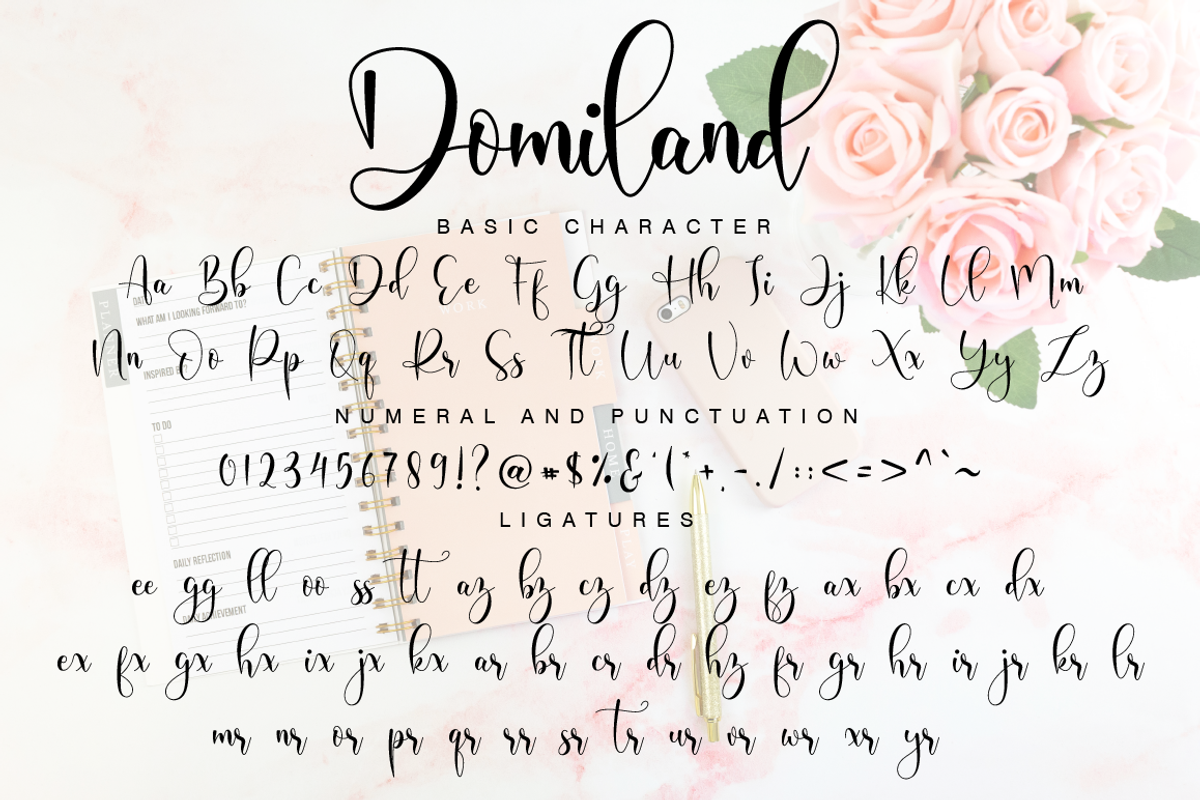 Domiland
BASIC CHARACTER
Aa Bb Cc Dd Ee Ff Gg Hh Ii Jj Kk Ll Mm
Nn Oo Pp Qq Rr Ss Tt Uu Vv Ww Xx Yy Zz
NUMERAL AND PUNCTUATION
0123456789!?@#$%&'(*+,-./:;<=>^`~
LIGATURES
ee gg ll oo ss tt az bz cz dz ez fz ax bx cx dx
ex fx gx hx ix jx kx ar br cr dr hz fr gr hr ir jr kr lr
mr nr or pr qr rr sr tr ur vr wr xr yr
WHAT AM I LOOKING FORWARD TO?
WORK
TO DO
HOME
DAILY REFLECTION